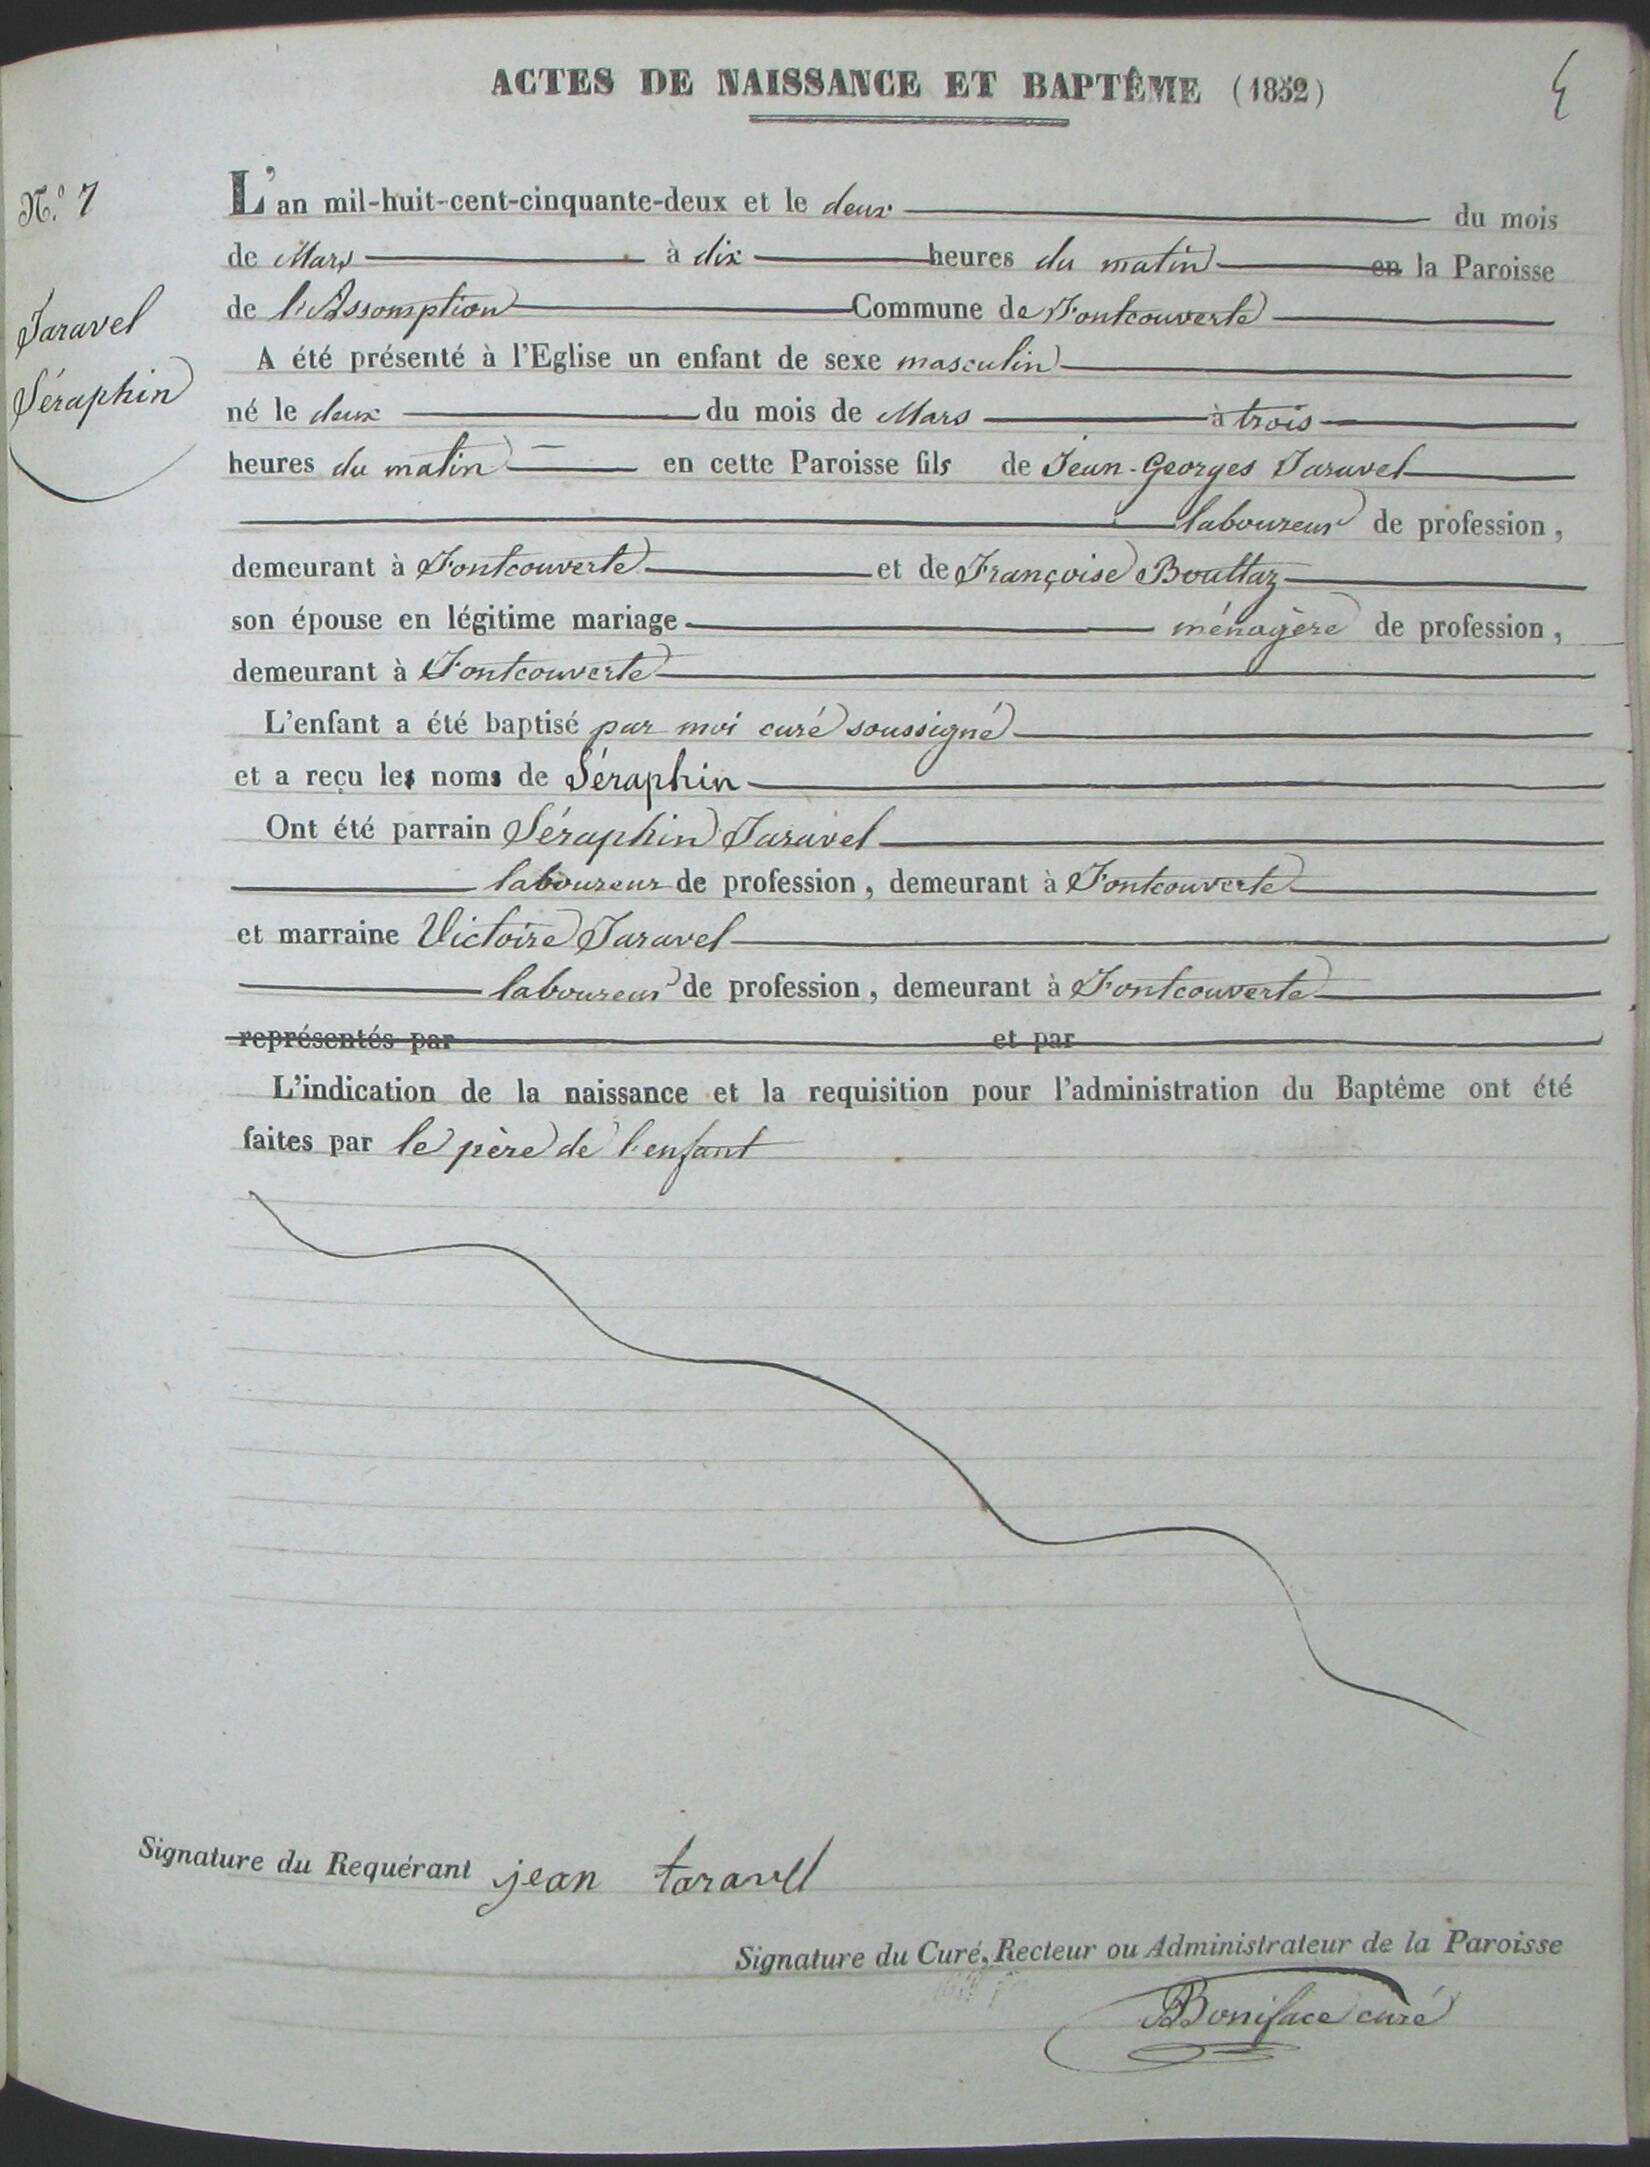 ACTES DE NAISSANCE ET BAPTÊME (1852)
N.° 7
Taravel
Séraphin
L'an mil-huit-cent-cinquante-deux et le deux du mois
de Mars à dix heures du matin en la Paroisse
de l'Assomption Commune de Fontcouverte
A été présenté à l'Eglise un enfant de sexe masculin
né le deux du mois de Mars à trois
heures du matin en cette Paroisse fils de Jean-Georges Taravel
laboureur de profession,
demeurant à Fontcouverte et de Françoise Bouttaz
son épouse en légitime mariage ménagère de profession,
demeurant à Fontcouverte
L'enfant a été baptisé par moi curé soussigné
et a reçu les noms de Séraphin
Ont été parrain Séraphin Taravel
laboureur de profession, demeurant à Fontcouverte
et marraine Victoire Taravel
laboureur de profession, demeurant à Fontcouverte
représentés par et par
L'indication de la naissance et la requisition pour l'administration du Baptême ont été
faites par le père de l'enfant
Signature du Requérant jean taravel
Signature du Curé, Recteur ou Administrateur de la Paroisse
Boniface curé